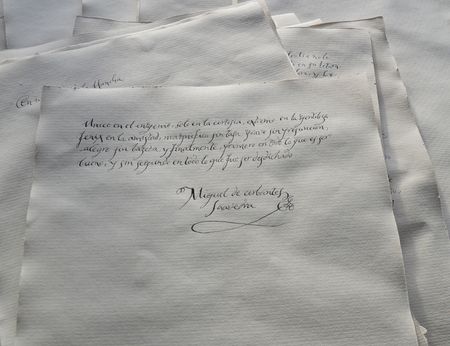 de la Mancha
Unico en el ingenio, solo en la cortesia, extremo en la gentileza
fenix en la amistad, magnifico sin tasa, grave sin presuncion,
alegre sin bajeza, y finalmente, primero en todo lo que es ser
bueno, y sin segundo en todo lo que fue ser desdichado
Miguel de cerbantes
Saavedra